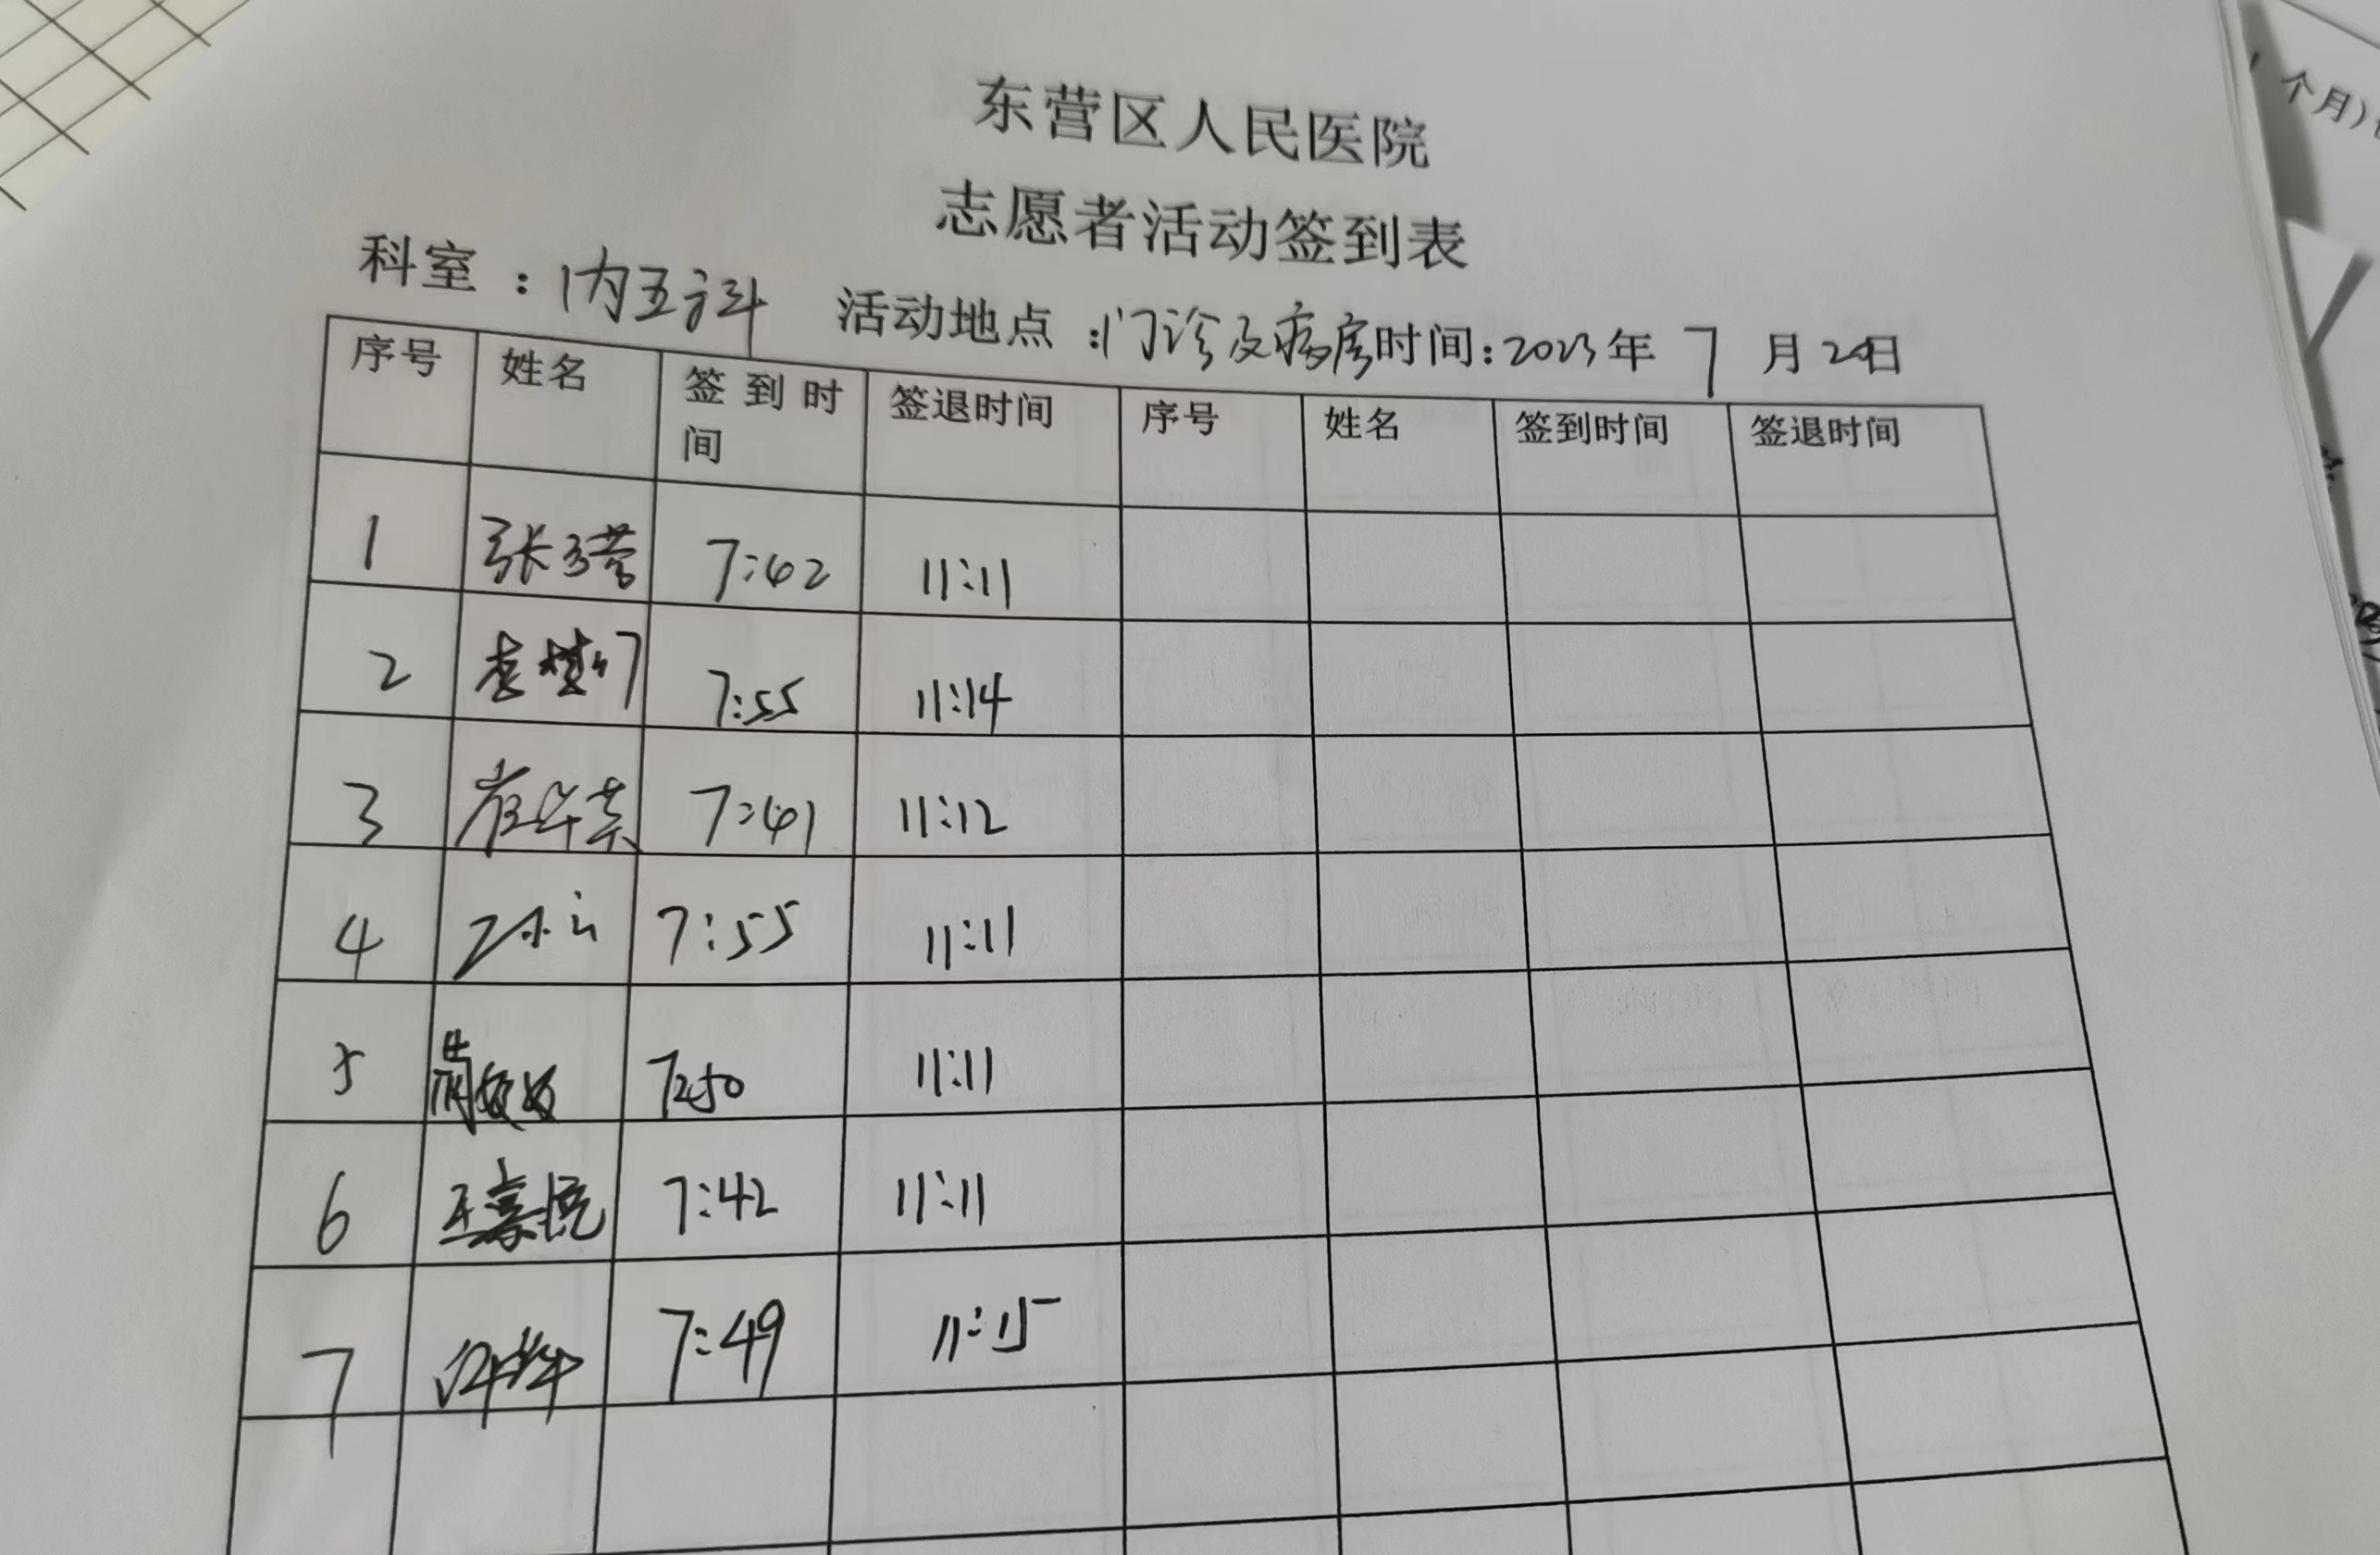 东营区人民医院
志愿者活动签到表
科室：内五科 活动地点：门诊及病房 时间：2023年7月20日
序号 姓名 签到时间 签退时间 序号 姓名 签到时间 签退时间
1 7:42 11:11
2 7:55 11:14
3 7:41 11:12
4 7:55 11:11
5 7:50 11:11
6 7:42 11:11
7 7:49 11:15
个月)